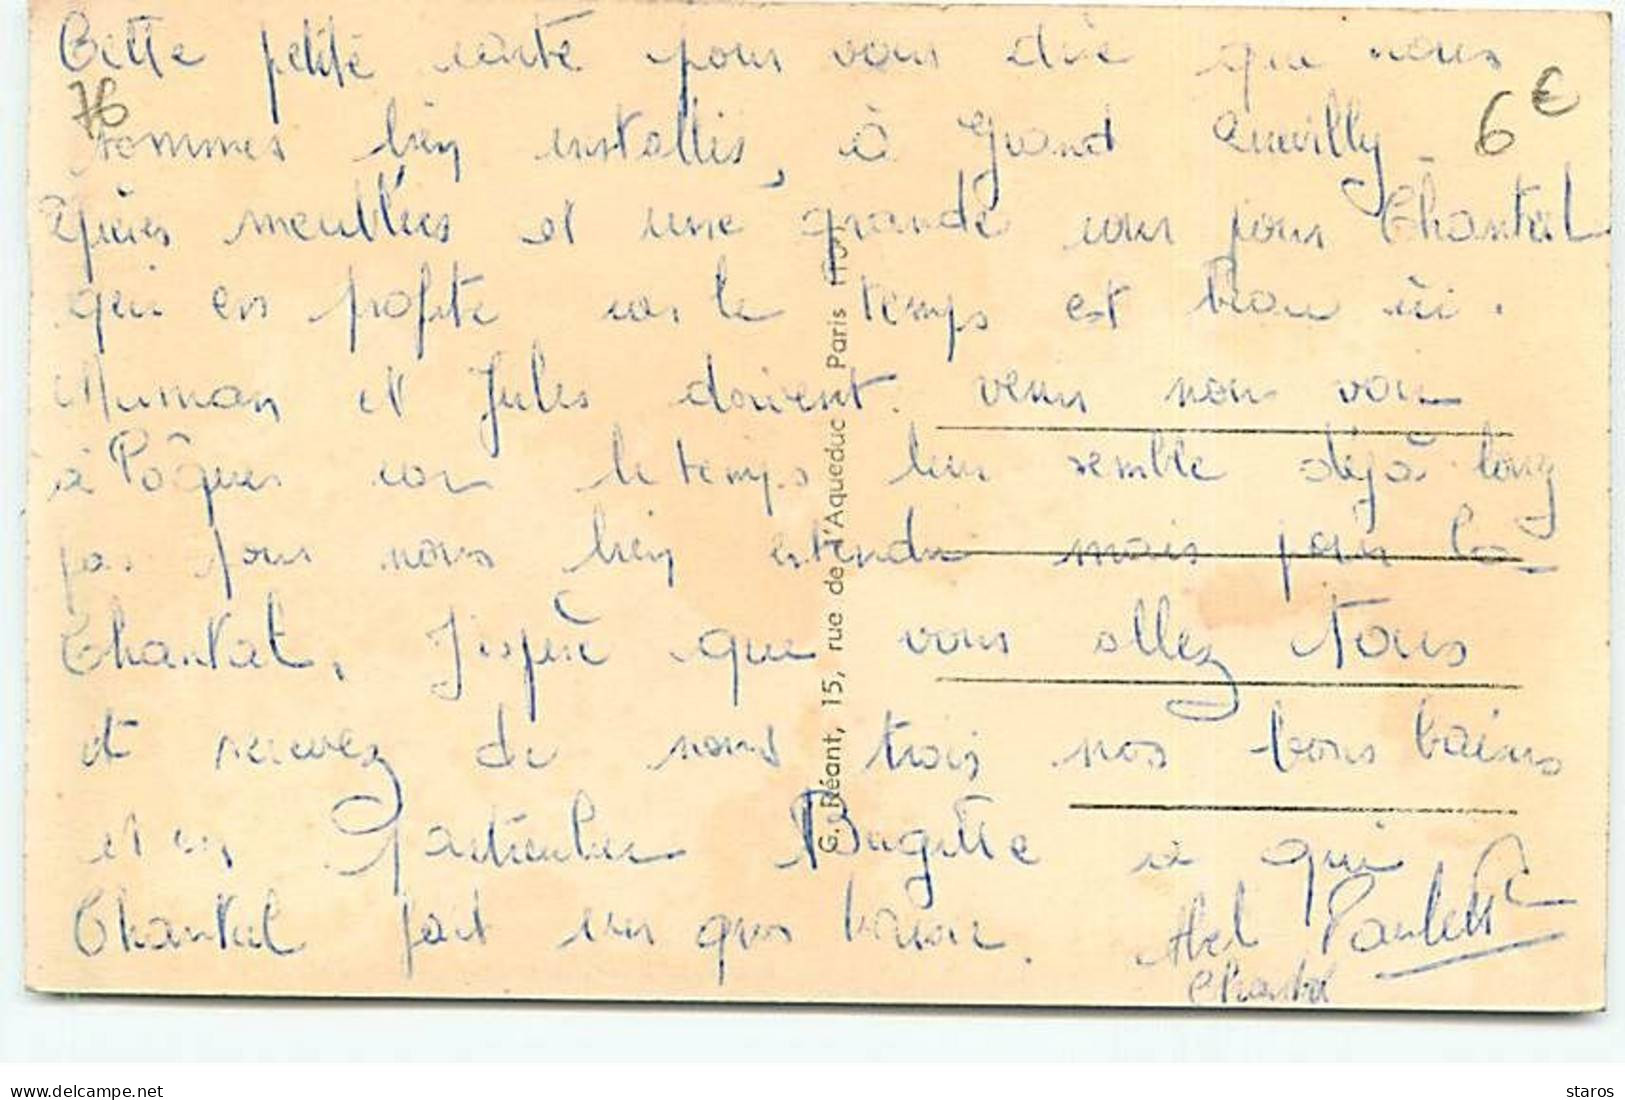 Cette petite carte pour vous dire que nous
76
sommes bien installés, à Grand Quevilly.
6 €
2 pièces meublées et une grande cour pour Chantal
qui en profite car le temps est beau ici.
Maman et Jules doivent venir nous voir
à Pâques car le temps leur semble déjà long
pas pour nous bien entendu mais pour la
Chantal. J'espère que vous allez tous
et recevez de nous trois nos bons baisers
et en particulier Brigitte à qui
Chantal fait un gros baiser. Abel Paulette
Chantal
G. Réant, 15, rue de l'Aqueduc Paris
delcampe.net
staros